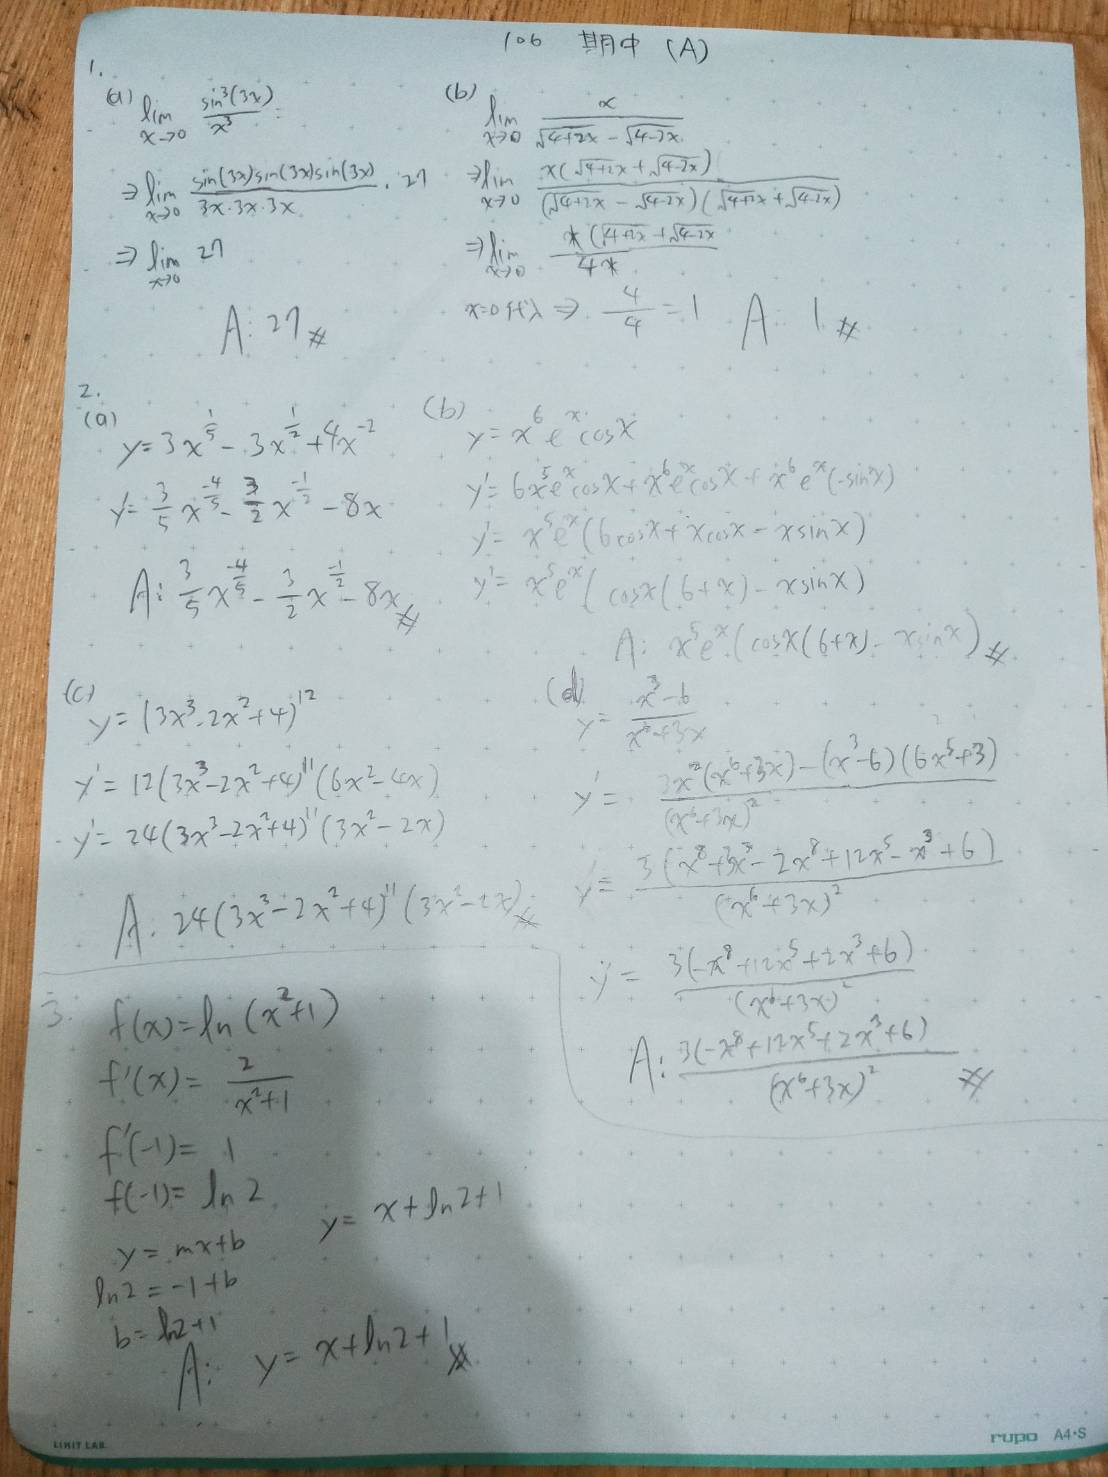 106 期中 (A)
1.
(a) lim x→0 sin³(3x)/x³
⇒ lim x→0 sin(3x)sin(3x)sin(3x)/3x·3x·3x · 27
⇒ lim x→0 27
A: 27 #
(b) lim x→0 x/(√4+2x − √4-2x)
⇒ lim x→0 x(√4+2x + √4-2x)/(√4+2x − √4-2x)(√4+2x + √4-2x)
⇒ lim x→0 x(√4+2x + √4-2x/4x
x=0代入 ⇒ 4/4 = 1 A: 1 #
2.
(a) y = 3x^(1/5) − 3x^(1/2) + 4x^-2
y' = 3/5 x^(-4/5) − 3/2 x^(-1/2) − 8x
A: 3/5 x^(-4/5) − 3/2 x^(-1/2) − 8x #
(b) y = x⁶eˣcosx
y' = 6x⁵eˣcosx + x⁶eˣcosx + x⁶eˣ(-sinx)
y' = x⁵eˣ(6cosx + xcosx − xsinx)
y' = x⁵eˣ(cosx(6+x) − xsinx)
A: x⁵eˣ(cosx(6+x) − xsinx) #
(c) y = (3x³-2x²+4)¹²
y' = 12(3x³-2x²+4)¹¹(6x²-4x)
y' = 24(3x³-2x²+4)¹¹(3x²-2x)
A: 24(3x³-2x²+4)¹¹(3x²-2x) #
(d) y = x³-6/x⁶+3x
y' = 3x²(x⁶+3x)-(x³-6)(6x⁵+3)/(x⁶+3x)²
y' = 3(x⁸+3x³-2x⁸+12x⁵-x³+6)/(x⁶+3x)²
y' = 3(-x⁸+12x⁵+2x³+6)/(x⁶+3x)²
A: 3(-x⁸+12x⁵+2x³+6)/(x⁶+3x)² #
3. f(x)=ln(x²+1)
f'(x)= 2/x²+1
f'(-1)= 1
f(-1)= ln2
y = mx+b
ln2 = -1+b
b = ln2+1
y = x+ln2+1
A: y = x+ln2+1 #
LIHIT LAB.
rupo A4·S